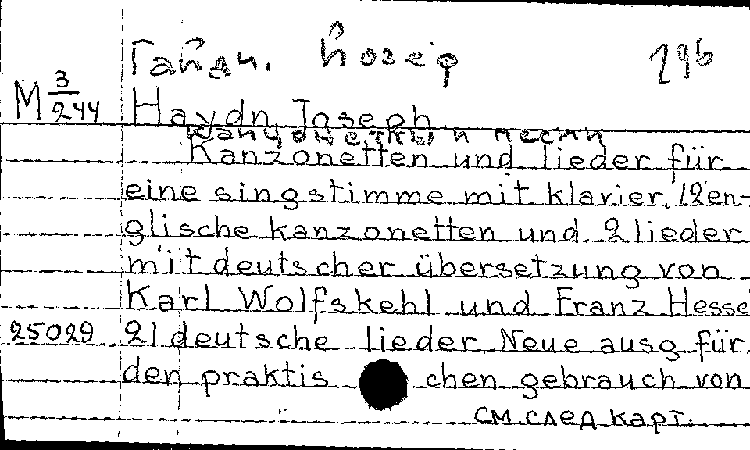 Гайдн. Йозеф 296
М 3/244 Haydn Joseph
Канцонетки и песни
Kanzonetten und lieder für
eine singstimme mit klavier. 12 en-
glische kanzonetten und 2 lieder
mit deutscher übersetzung von
Karl Wolfskehl und Franz Hesse
25029 21 deutsche lieder Neue ausg für
den praktis chen gebrauch von
см. след карт.